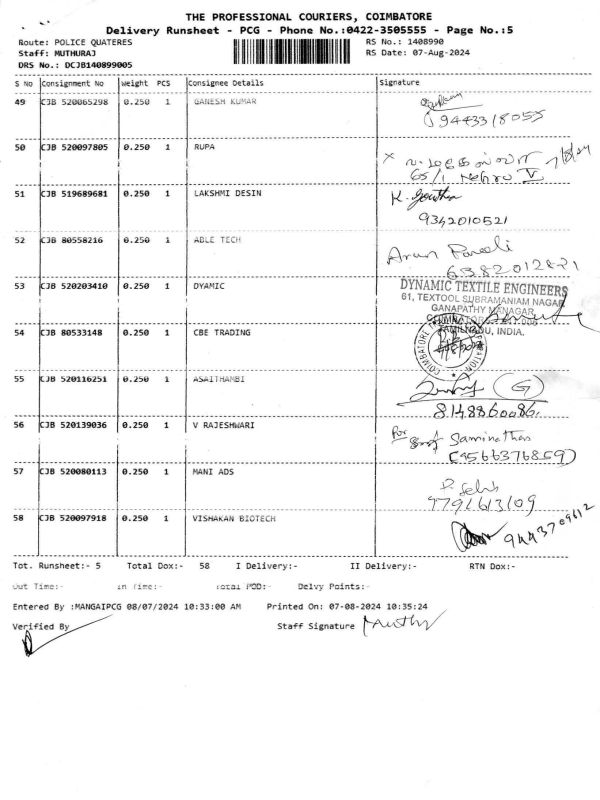 THE PROFESSIONAL COURIERS, COIMBATORE
Delivery Runsheet - PCG - Phone No.:0422-3505555 - Page No.:5
Route: POLICE QUATERES RS No.: 1408990
Staff: MUTHURAJ RS Date: 07-Aug-2024
DRS No.: DCJB140899005
S No Consignment No Weight PCS Consignee Details Signature
49 CJB 520065298 0.250 1 GANESH KUMAR
9443318055
50 CJB 520097805 0.250 1 RUPA
65/1 Nehru V
51 CJB 519689681 0.250 1 LAKSHMI DESIN K. Gowtham
9342010521
52 CJB 80558216 0.250 1 ABLE TECH Arun
6382012821
53 CJB 520203410 0.250 1 DYAMIC DYNAMIC TEXTILE ENGINEERS
61, TEXTOOL SUBRAMANIAM NAGAR
GANAPATHY MANAGAR
TAMILNADU, INDIA.
54 CJB 80533148 0.250 1 CBE TRADING
55 CJB 520116251 0.250 1 ASAITHAMBI (G)
8148860086
56 CJB 520139036 0.250 1 V RAJESHWARI For Saminathan
(9566376859)
57 CJB 520080113 0.250 1 MANI ADS
9791613109
58 CJB 520097918 0.250 1 VISHAKAN BIOTECH 9443709612
Tot. Runsheet:- 5 Total Dox:- 58 I Delivery:- II Delivery:- RTN Dox:-
Out Time:- In Time:- Total POD:- Delvy Points:-
Entered By :MANGAIPCG 08/07/2024 10:33:00 AM Printed On: 07-08-2024 10:35:24
Verified By Staff Signature